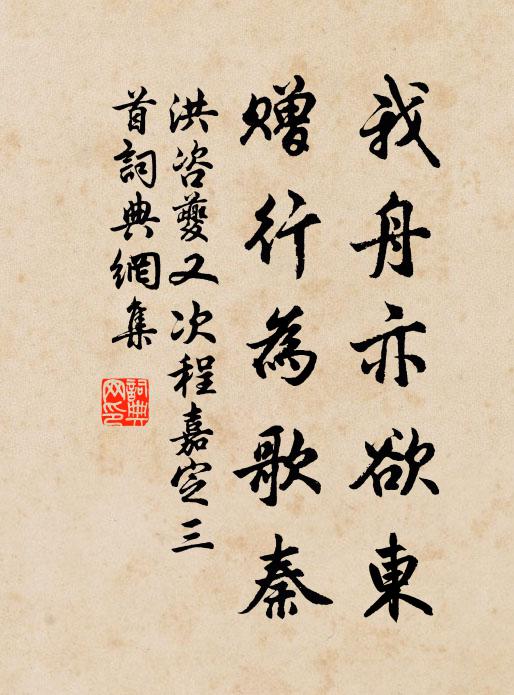 我舟亦欲東
贈行為歌秦
洪咨夔又次程嘉定三
首詞典網集
詞典
网印